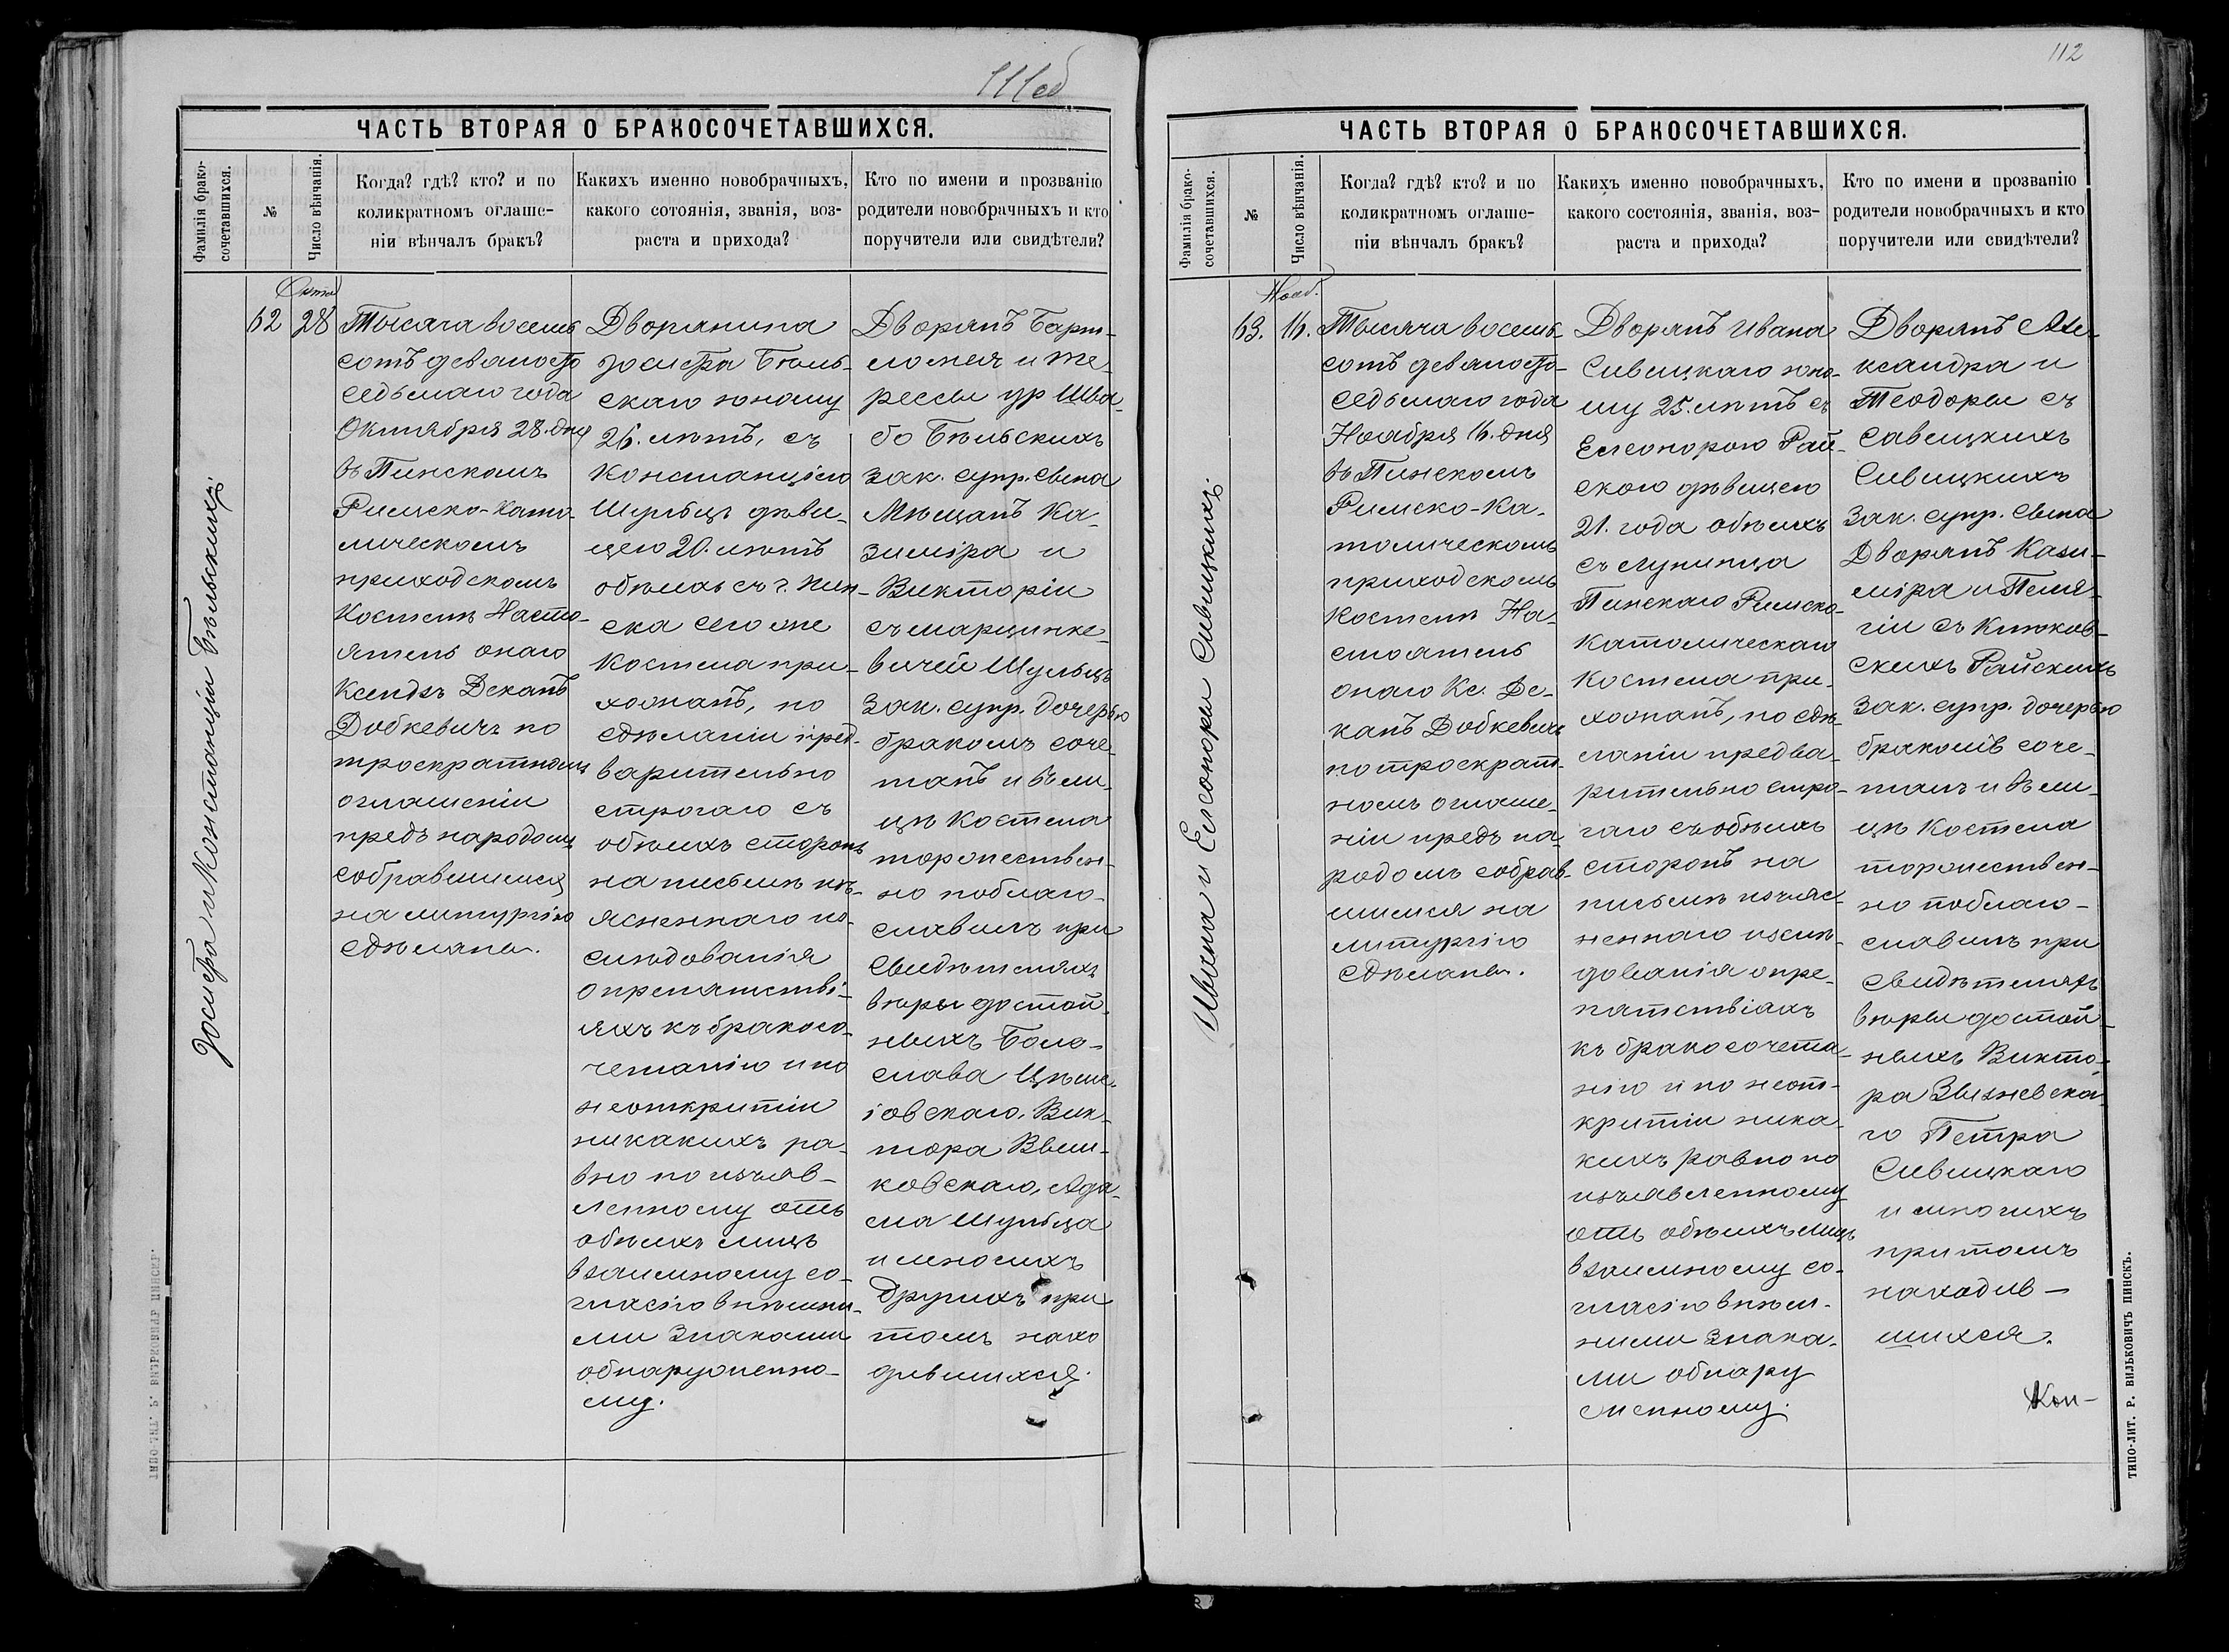 111об
ЧАСТЬ ВТОРАЯ О БРАКОСОЧЕТАВШИХСЯ.
Фамилія брако-
сочетавшихся.
№
Число вѣнчанія.
Когда? гдѣ? кто? и по
коликратномъ оглаше-
ніи вѣнчалъ бракъ?
Какихъ именно новобрачныхъ,
какого сотоянія, званія, воз-
раста и прихода?
Кто по имени и прозванію
родители новобрачныхъ и кто
поручители или свидѣтели?
Іосифа и Констанціи Бѣльскихъ.
62
28
Тысяча восемь
сотъ девяносто
седьмаго года
Октября 28. дня
въ Пинскомъ
Римско-Като-
лическомъ
приходскомъ
Костелѣ Насто-
ятель онаго
Ксендзъ Деканъ
Добкевичъ по
троекратномъ
оглашеніи
предъ народомъ
собравшимся
на литургію
сдѣланы.
Дворянина
Іосифа Бѣль-
скаго юношу
26. лѣтъ, съ
Констанціею
Шульцъ дѣви-
цею 20. лѣтъ
обѣихъ съ г. Пин-
ска сего же
Костела при-
хожанъ, по
сдѣланіи пред-
варительно
строгаго съ
обѣихъ сторонъ
на письмѣ изъ-
ясненнаго из-
слѣдованія
о препятстві-
яхъ къ бракосо-
четанію и по
неоткрытіи
никакихъ ра-
вно по изъяв-
ленному отъ
обѣихъ лицъ
взаимному со-
гласію внѣшни-
ми знаками
обнаруженно-
му.
Дворянъ Барт-
ломея и Те-
рессы ур Шва-
бо Бѣльскихъ
зак. супр. сына
Мѣщанъ Ка-
зиміра и
Викторіи
съ Марцинке-
вичей Шульцъ
зак. супр. дочерью
бракомъ соче-
талъ и въ ли-
цѣ Костела
торжествен-
но поблаго-
славилъ при
свидѣтеляхъ
вѣры достой-
ныхъ Боло-
слава Цѣше-
іовскаго, Вик-
тора
ковскаго, Ада-
ма Шульца
и многихъ
другихъ при
томъ нахо
дившихся.
ТИПО-ЛИТ. Р. ВИЛЬКОВИЧЪ ПИНСКЪ.
112
ЧАСТЬ ВТОРАЯ О БРАКОСОЧЕТАВШИХСЯ.
Фамилія брако-
сочетавшихся.
№
Число вѣнчанія.
Когда? гдѣ? кто? и по
коликратномъ оглаше-
ніи вѣнчалъ бракъ?
Какихъ именно новобрачныхъ,
какого состоянія, званія, воз-
раста и прихода?
Кто по имени и прозванію
родители новобрачныхъ и кто
поручители или свидѣтели?
Ивана и Елеоноры Сивицкихъ.
Нояб.
63.
16.
Тысяча восемь-
сотъ девяносто-
седьмаго года
Ноября 16. дня
въ Пинскомъ
Римско-Ка-
толическомъ
приходскомъ
Костелѣ На-
стоятель
онаго Кс. Де-
канъ Добкевичъ
по троекрат-
номъ оглаше-
ніи предъ на-
родомъ собрав-
шимся на
литургію
сдѣланы.
Дворянъ Ивана
Сивицкаго юно-
шу 25. лѣтъ съ
Елеонорою Рай-
скою дѣвицею
21. года обѣихъ
съ Лунинца
Пинскаго Римско-
Католическаго
Костела при-
хожанъ, по сдѣ-
ланіи предва-
рительно стро-
гаго съ обѣихъ
сторонъ на
письмѣ изъяс-
неннаго изслѣ-
дованія о пре-
пятствіяхъ
къ бракосочета-
нію и по неот-
крытіи ника-
кихъ равно по
изъявленному
отъ обѣихъ лицъ
взаимному со-
гласію внѣш-
ними знака-
ми обнару
женному.
Дворянъ Але-
ксандра и
Теодоры съ
Савицкихъ
Сивицкихъ
Зак. супр. сына
Дворянъ Кази-
міра и Пеля-
гіи съ Клюков-
скихъ Райскихъ
зак. супр. дочерью
бракомъ соче-
талъ и въ ли-
цѣ Костела
торжествен-
но поблаго-
славилъ при
свидѣтеляхъ
вѣры достой-
ныхъ Викто-
ра
го Петра
Сивицкаго
и многихъ
при томъ
находив-
шихся.
Кон-
ТИПО-ЛИТ. Р. ВИЛЬКОВИЧЪ ПИНСКЪ.